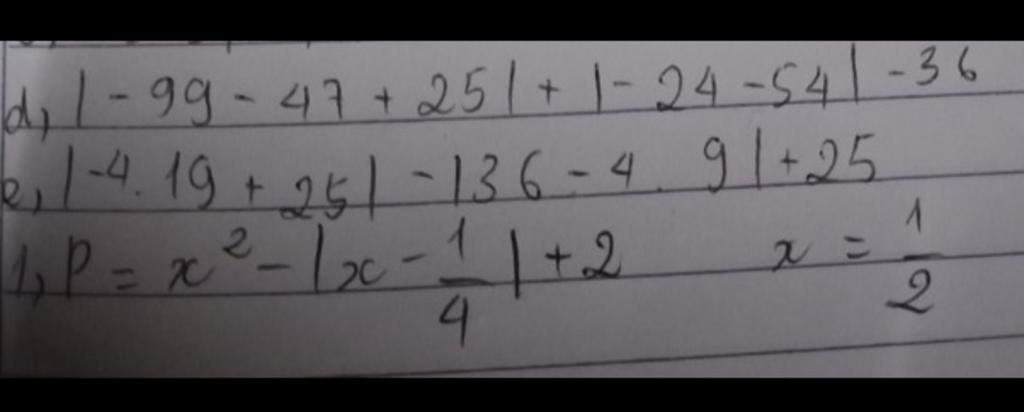 d, | - 99 - 47 + 25 | + | - 24 - 54 | - 36
e, | -4 . 19 + 25 | - | 36 - 4 . 9 | + 25
1, P = x² - | x - 1/4 | + 2 x = 1/2